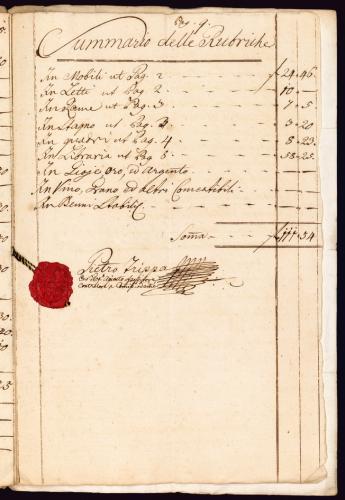 Pag. 9.
Summario delle Rubriche
In Mobili ut Pag. 2 f 24.46
In Lette ut Pag. 2 10.
In Rame ut Pag. 3 7.5
In Stagno ut Pag. 3. 3.20
In quadri ut Pag. 4 8.23
In Libraria ut Pag 5 58.25.
In Gioje Oro, ed Argento.
In Vino, Grano ed altri Comestibili
In Benni Stabili
Soma f 111.54
Pietro Trippa